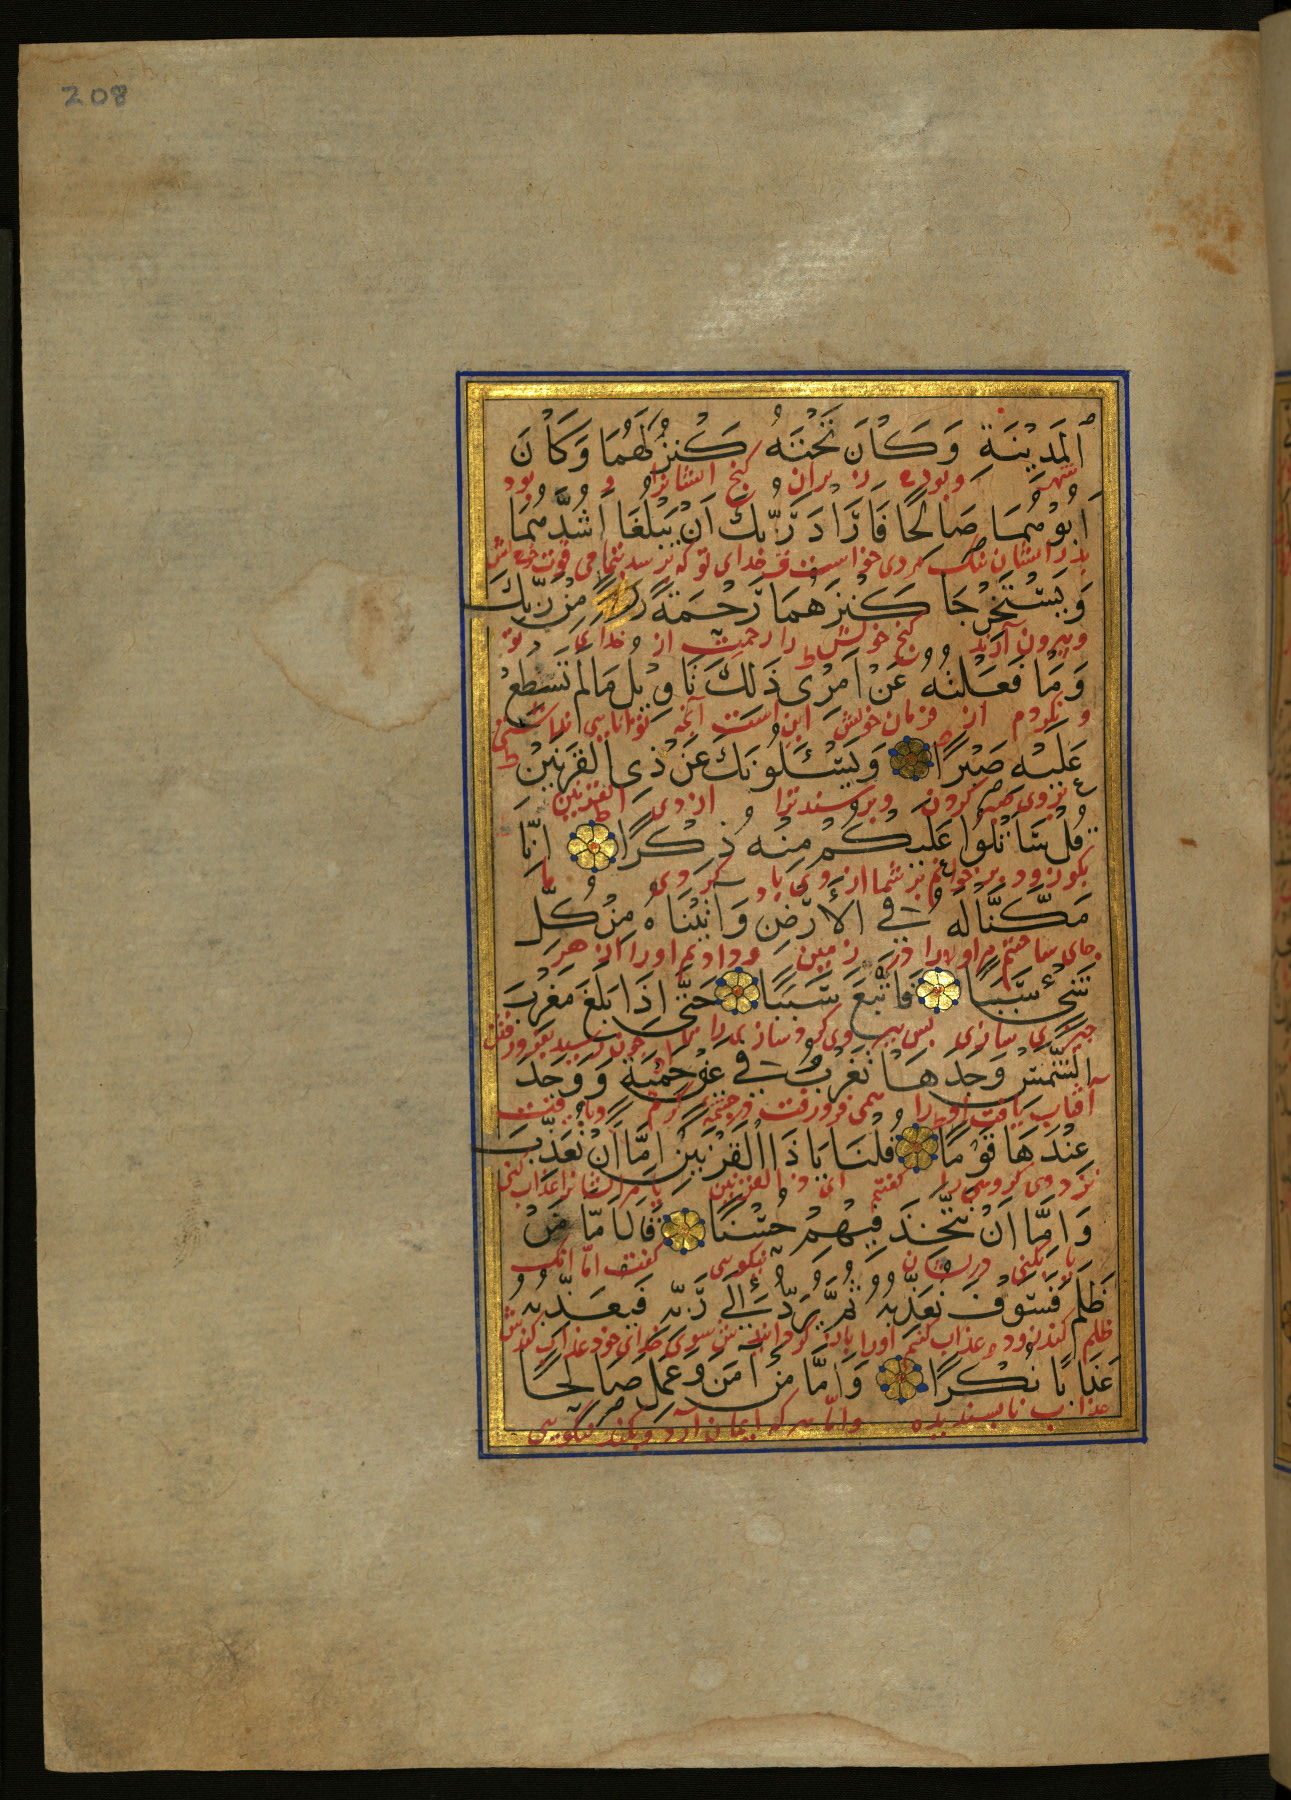 208
الْمَدِينَةِ وَكَانَ تَحْتَهُ كَنْزٌ لَهُمَا وَكَانَ
شهر وبود در زیر آن گنج ایشانرا و بود
اَبُوهُمَا صَالِحًا فَاَرَادَ رَبُّكَ اَنْ يَبْلُغَا اَشُدَّهُمَا
پدر ایشان نیک مردی خواست خدای تو که برسند بتمامی قوت
وَيَسْتَخْرِجَا كَنْزَهُمَا رَحْمَةً مِنْ رَبِّكَ
وبیرون آرند گنج خویش را رحمت از خدای تو
وَمَا فَعَلْتُهُ عَنْ اَمْرِى ذَلِكَ تَاْوِيلُ مَالَمْ تَسْطِعْ
و نکردم از فرمان خویش این است آنچه توانایی نداشتی
عَلَيْهِ صَبْرًا وَيَسْئَلُونَكَ عَنْ ذِى الْقَرْنَيْنِ
بروی صبر کردن وپرسند ترا از ذی القرنین
قُلْ سَاَتْلُوا عَلَيْكُمْ مِنْهُ ذِكْرًا اِنَّا
بکو زود بر خوانم بر شما از وی یاد کردی ما
مَكَّنَّا لَهُ فِي الْاَرْضِ وَآتَيْنَاهُ مِنْ كُلِّ
جای ساختیم مر اورا در زمین ودادیم اورا از هر
شَىْءٍ سَبَبًا فَاَتْبَعَ سَبَبًا حَتَّى اِذَا بَلَغَ مَغْرِبَ
چیزی سازی پس پی روی کرد سازی را تا چون رسید بفرو رفتن
الشَّمْسِ وَجَدَهَا تَغْرُبُ فِي عَيْنٍ حَمِئَةٍ وَوَجَدَ
آفتاب یافت اورا همی فرو رفت در چشمه گرم ویافت
عِنْدَهَا قَوْمًا قُلْنَا يَا ذَا الْقَرْنَيْنِ اِمَّا اَنْ تُعَذِّبَ
نزد وی گروهی را گفتیم ای ذو القرنین یا مر ایشانرا عذاب کنی
وَاِمَّا اَنْ تَتَّخِذَ فِيهِمْ حُسْنًا قَالَ اَمَّا مَنْ
یا بکنی در ایشان نیکویی گفت اما آنک
ظَلَمَ فَسَوْفَ نُعَذِّبُهُ ثُمَّ يُرَدُّ اِلَى رَبِّهِ فَيُعَذِّبُهُ
ظلم کند زود عذاب کنیم اورا باز گردانندش سوی خدای خود عذاب کندش
عَذَابًا نُكْرًا وَاَمَّا مَنْ آمَنَ وَعَمِلَ صَالِحًا
عذاب ناپسندیده واما هر که ایمان آرد وبکند نیکویی